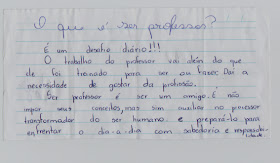 O que é ser professor?
É um desafio diário!!!
O trabalho do professor vai além do que
ele foi treinado para ser ou fazer. Daí a
necessidade de gostar da profissão.
Ser professor é ser um amigo. É não
impor seus conceitos, mas sim auxiliar no processo
transformador do ser humano e prepará-lo para
enfrentar o dia-a-dia com sabedoria e responsabi-
lidade.